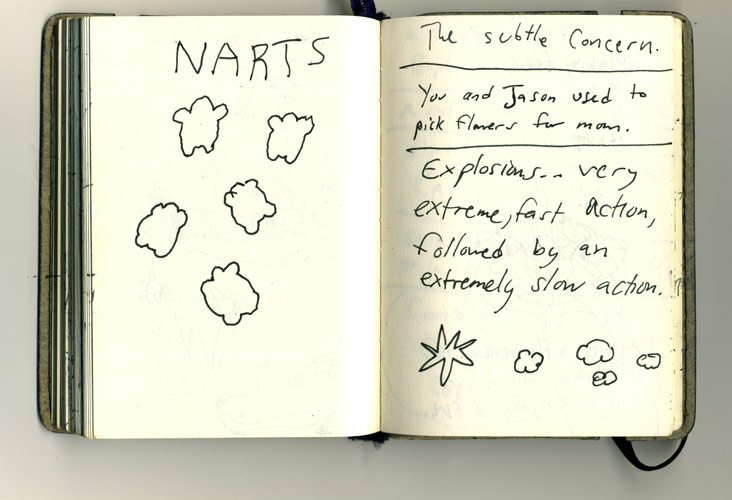 NARTS
The subtle Concern.
You and Jason used to
pick flowers for mom.
Explosions... very
extreme, fast action,
followed by an
extremely slow action.